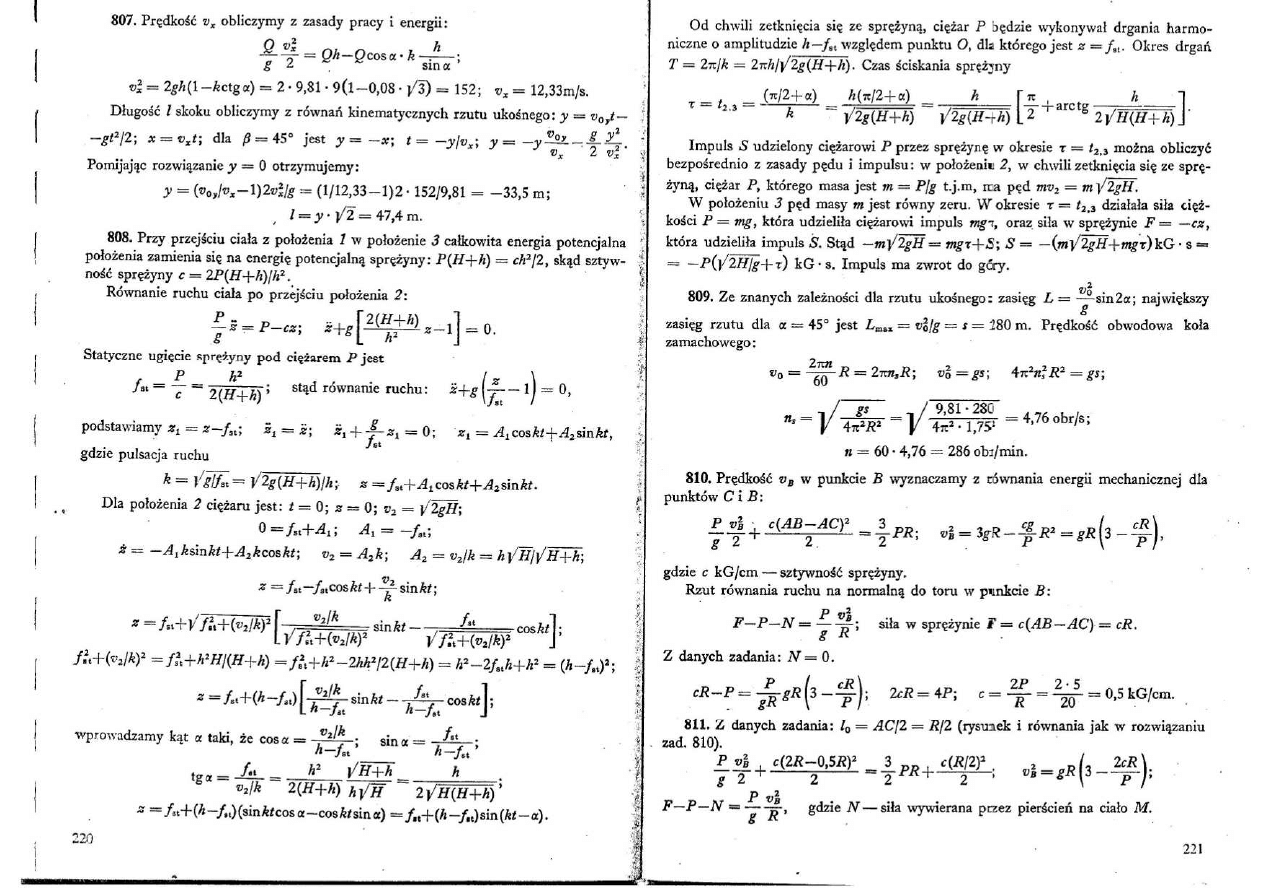 807. Prędkość vₓ obliczymy z zasady pracy i energii:
Q/g vₓ²/2 = Qh—Q cos α · k h/sin α ;
vₓ² = 2gh(1—kctg α) = 2 · 9,81 · 9(1—0,08 · √3) = 152; vₓ = 12,33m/s.
Długość l skoku obliczymy z równań kinematycznych rzutu ukośnego: y = v₀ᵧt—
—gt²/2; x = vₓt; dla β = 45° jest y = —x; t = —y/vₓ; y = —y v₀ᵧ/vₓ — g/2 y²/vₓ².
Pomijając rozwiązanie y = 0 otrzymujemy:
y = (v₀ᵧ/vₓ—1)2vₓ²/g = (1/12,33—1)2 · 152/9,81 = —33,5 m;
l = y · √2 = 47,4 m.
808. Przy przejściu ciała z położenia 1 w położenie 3 całkowita energia potencjalna
położenia zamienia się na energię potencjalną sprężyny: P(H+h) = ch²/2, skąd sztyw-
ność sprężyny c = 2P(H+h)/h².
Równanie ruchu ciała po przejściu położenia 2:
P/g z̈ = P—cz; z̈+g[2(H+h)/h² z—1] = 0.
Statyczne ugięcie sprężyny pod ciężarem P jest
fst = P/c = h²/2(H+h) ; stąd równanie ruchu: z̈+g(z/fst — 1) = 0,
podstawiamy z₁ = z—fst; z̈₁ = z̈; z̈₁ + g/fst z₁ = 0; z₁ = A₁coskt+A₂sinkt,
gdzie pulsacja ruchu
k = √g/fst = √2g(H+h)/h; z = fst+A₁coskt+A₂sinkt.
Dla położenia 2 ciężaru jest: t = 0; z = 0; v₂ = √2gH;
0 = fst+A₁; A₁ = —fst;
ż = —A₁ksinkt+A₂kcoskt; v₂ = A₂k; A₂ = v₂/k = h√H/√H+h;
z = fst—fstcoskt + v₂/k sinkt;
z = fst+√fst²+(v₂/k)² [ v₂/k / √fst²+(v₂/k)² sinkt — fst / √fst²+(v₂/k)² coskt ];
fst²+(v₂/k)² = fst²+h²H/(H+h) = fst²+h²—2hh²/2(H+h) = h²—2fsth+h² = (h—fst)²;
z = fst+(h—fst) [ v₂/k / h—fst sinkt — fst / h—fst coskt ];
wprowadzamy kąt α taki, że cos α = v₂/k / h—fst ; sin α = fst / h—fst ;
tg α = fst / v₂/k = h²/2(H+h) √H+h / h√H = h / 2√H(H+h) ;
z = fst+(h—fst)(sinktcos α—cosktsin α) = fst+(h—fst)sin(kt—α).
220
Od chwili zetknięcia się ze sprężyną, ciężar P będzie wykonywał drgania harmo-
niczne o amplitudzie h—fst względem punktu O, dla którego jest z = fst. Okres drgań
T = 2π/k = 2πh/√2g(H+h). Czas ściskania sprężyny
τ = t₂,₃ = (π/2+α)/k = h(π/2+α)/√2g(H+h) = h/√2g(H+h) [ π/2 + arctg h / 2√H(H+h) ].
Impuls S udzielony ciężarowi P przez sprężynę w okresie τ = t₂,₃ można obliczyć
bezpośrednio z zasady pędu i impulsu: w położeniu 2, w chwili zetknięcia się ze sprę-
żyną, ciężar P, którego masa jest m = P/g t.j.m, ma pęd mv₂ = m√2gH.
W położeniu 3 pęd masy m jest równy zeru. W okresie τ = t₂,₃ działała siła cięż-
kości P = mg, która udzieliła ciężarowi impuls mgτ, oraz siła w sprężynie F = —cz,
która udzieliła impuls S. Stąd —m√2gH = mgτ+S; S = —(m√2gH+mgτ) kG · s =
= —P(√2H/g+τ) kG · s. Impuls ma zwrot do góry.
809. Ze znanych zależności dla rzutu ukośnego: zasięg L = v₀²/g sin2α; największy
zasięg rzutu dla α = 45° jest Lmax = v₀²/g = s = 280 m. Prędkość obwodowa koła
zamachowego:
v₀ = 2πn/60 R = 2πnₛR; v₀² = gs; 4π²nₛ²R² = gs;
nₛ = √gs/4π²R² = √9,81 · 280/4π² · 1,75² = 4,76 obr/s;
n = 60 · 4,76 = 286 obr/min.
810. Prędkość vB w punkcie B wyznaczamy z równania energii mechanicznej dla
punktów C i B:
P/g vB²/2 + c(AB—AC)²/2 = 3/2 PR; vB² = 3gR — cg/P R² = gR(3 — cR/P),
gdzie c kG/cm — sztywność sprężyny.
Rzut równania ruchu na normalną do toru w punkcie B:
F—P—N = P/g vB²/R ; siła w sprężynie F = c(AB—AC) = cR.
Z danych zadania: N = 0.
cR—P = P/gR gR(3 — cR/P); 2cR = 4P; c = 2P/R = 2 · 5/20 = 0,5 kG/cm.
811. Z danych zadania: l₀ = AC/2 = R/2 (rysunek i równania jak w rozwiązaniu
zad. 810).
P/g vB²/2 + c(2R—0,5R)²/2 = 3/2 PR + c(R/2)²/2 ; vB² = gR(3 — 2cR/P);
F—P—N = P/g vB²/R , gdzie N — siła wywierana przez pierścień na ciało M.
221